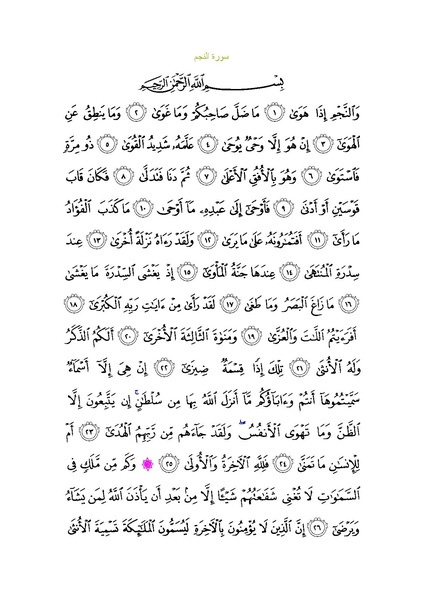 سورة النجم
بِسْمِ اللَّهِ الرَّحْمَٰنِ الرَّحِيمِ
وَالنَّجْمِ إِذَا هَوَىٰ ١ مَا ضَلَّ صَاحِبُكُمْ وَمَا غَوَىٰ ٢ وَمَا يَنطِقُ عَنِ
الْهَوَىٰ ٣ إِنْ هُوَ إِلَّا وَحْيٌ يُوحَىٰ ٤ عَلَّمَهُ شَدِيدُ الْقُوَىٰ ٥ ذُو مِرَّةٍ
فَاسْتَوَىٰ ٦ وَهُوَ بِالْأُفُقِ الْأَعْلَىٰ ٧ ثُمَّ دَنَا فَتَدَلَّىٰ ٨ فَكَانَ قَابَ
قَوْسَيْنِ أَوْ أَدْنَىٰ ٩ فَأَوْحَىٰ إِلَىٰ عَبْدِهِ مَا أَوْحَىٰ ١٠ مَا كَذَبَ الْفُؤَادُ
مَا رَأَىٰ ١١ أَفَتُمَارُونَهُ عَلَىٰ مَا يَرَىٰ ١٢ وَلَقَدْ رَءَاهُ نَزْلَةً أُخْرَىٰ ١٣ عِندَ
سِدْرَةِ الْمُنتَهَىٰ ١٤ عِندَهَا جَنَّةُ الْمَأْوَىٰ ١٥ إِذْ يَغْشَى السِّدْرَةَ مَا يَغْشَىٰ
١٦ مَا زَاغَ الْبَصَرُ وَمَا طَغَىٰ ١٧ لَقَدْ رَأَىٰ مِنْ ءَايَاتِ رَبِّهِ الْكُبْرَىٰ ١٨
أَفَرَءَيْتُمُ اللَّاتَ وَالْعُزَّىٰ ١٩ وَمَنَوٰةَ الثَّالِثَةَ الْأُخْرَىٰ ٢٠ أَلَكُمُ الذَّكَرُ
وَلَهُ الْأُنثَىٰ ٢١ تِلْكَ إِذًا قِسْمَةٌ ضِيزَىٰ ٢٢ إِنْ هِيَ إِلَّا أَسْمَاءٌ
سَمَّيْتُمُوهَا أَنتُمْ وَءَابَاؤُكُم مَّا أَنزَلَ اللَّهُ بِهَا مِن سُلْطَانٍ ۚ إِن يَتَّبِعُونَ إِلَّا
الظَّنَّ وَمَا تَهْوَى الْأَنفُسُ ۖ وَلَقَدْ جَاءَهُم مِّن رَّبِّهِمُ الْهُدَىٰ ٢٣ أَمْ
لِلْإِنسَانِ مَا تَمَنَّىٰ ٢٤ فَلِلَّهِ الْآخِرَةُ وَالْأُولَىٰ ٢٥ ۞ وَكَم مِّن مَّلَكٍ فِي
السَّمَاوَاتِ لَا تُغْنِي شَفَاعَتُهُمْ شَيْئًا إِلَّا مِن بَعْدِ أَن يَأْذَنَ اللَّهُ لِمَن يَشَاءُ
وَيَرْضَىٰ ٢٦ إِنَّ الَّذِينَ لَا يُؤْمِنُونَ بِالْآخِرَةِ لَيُسَمُّونَ الْمَلَائِكَةَ تَسْمِيَةَ الْأُنثَىٰ